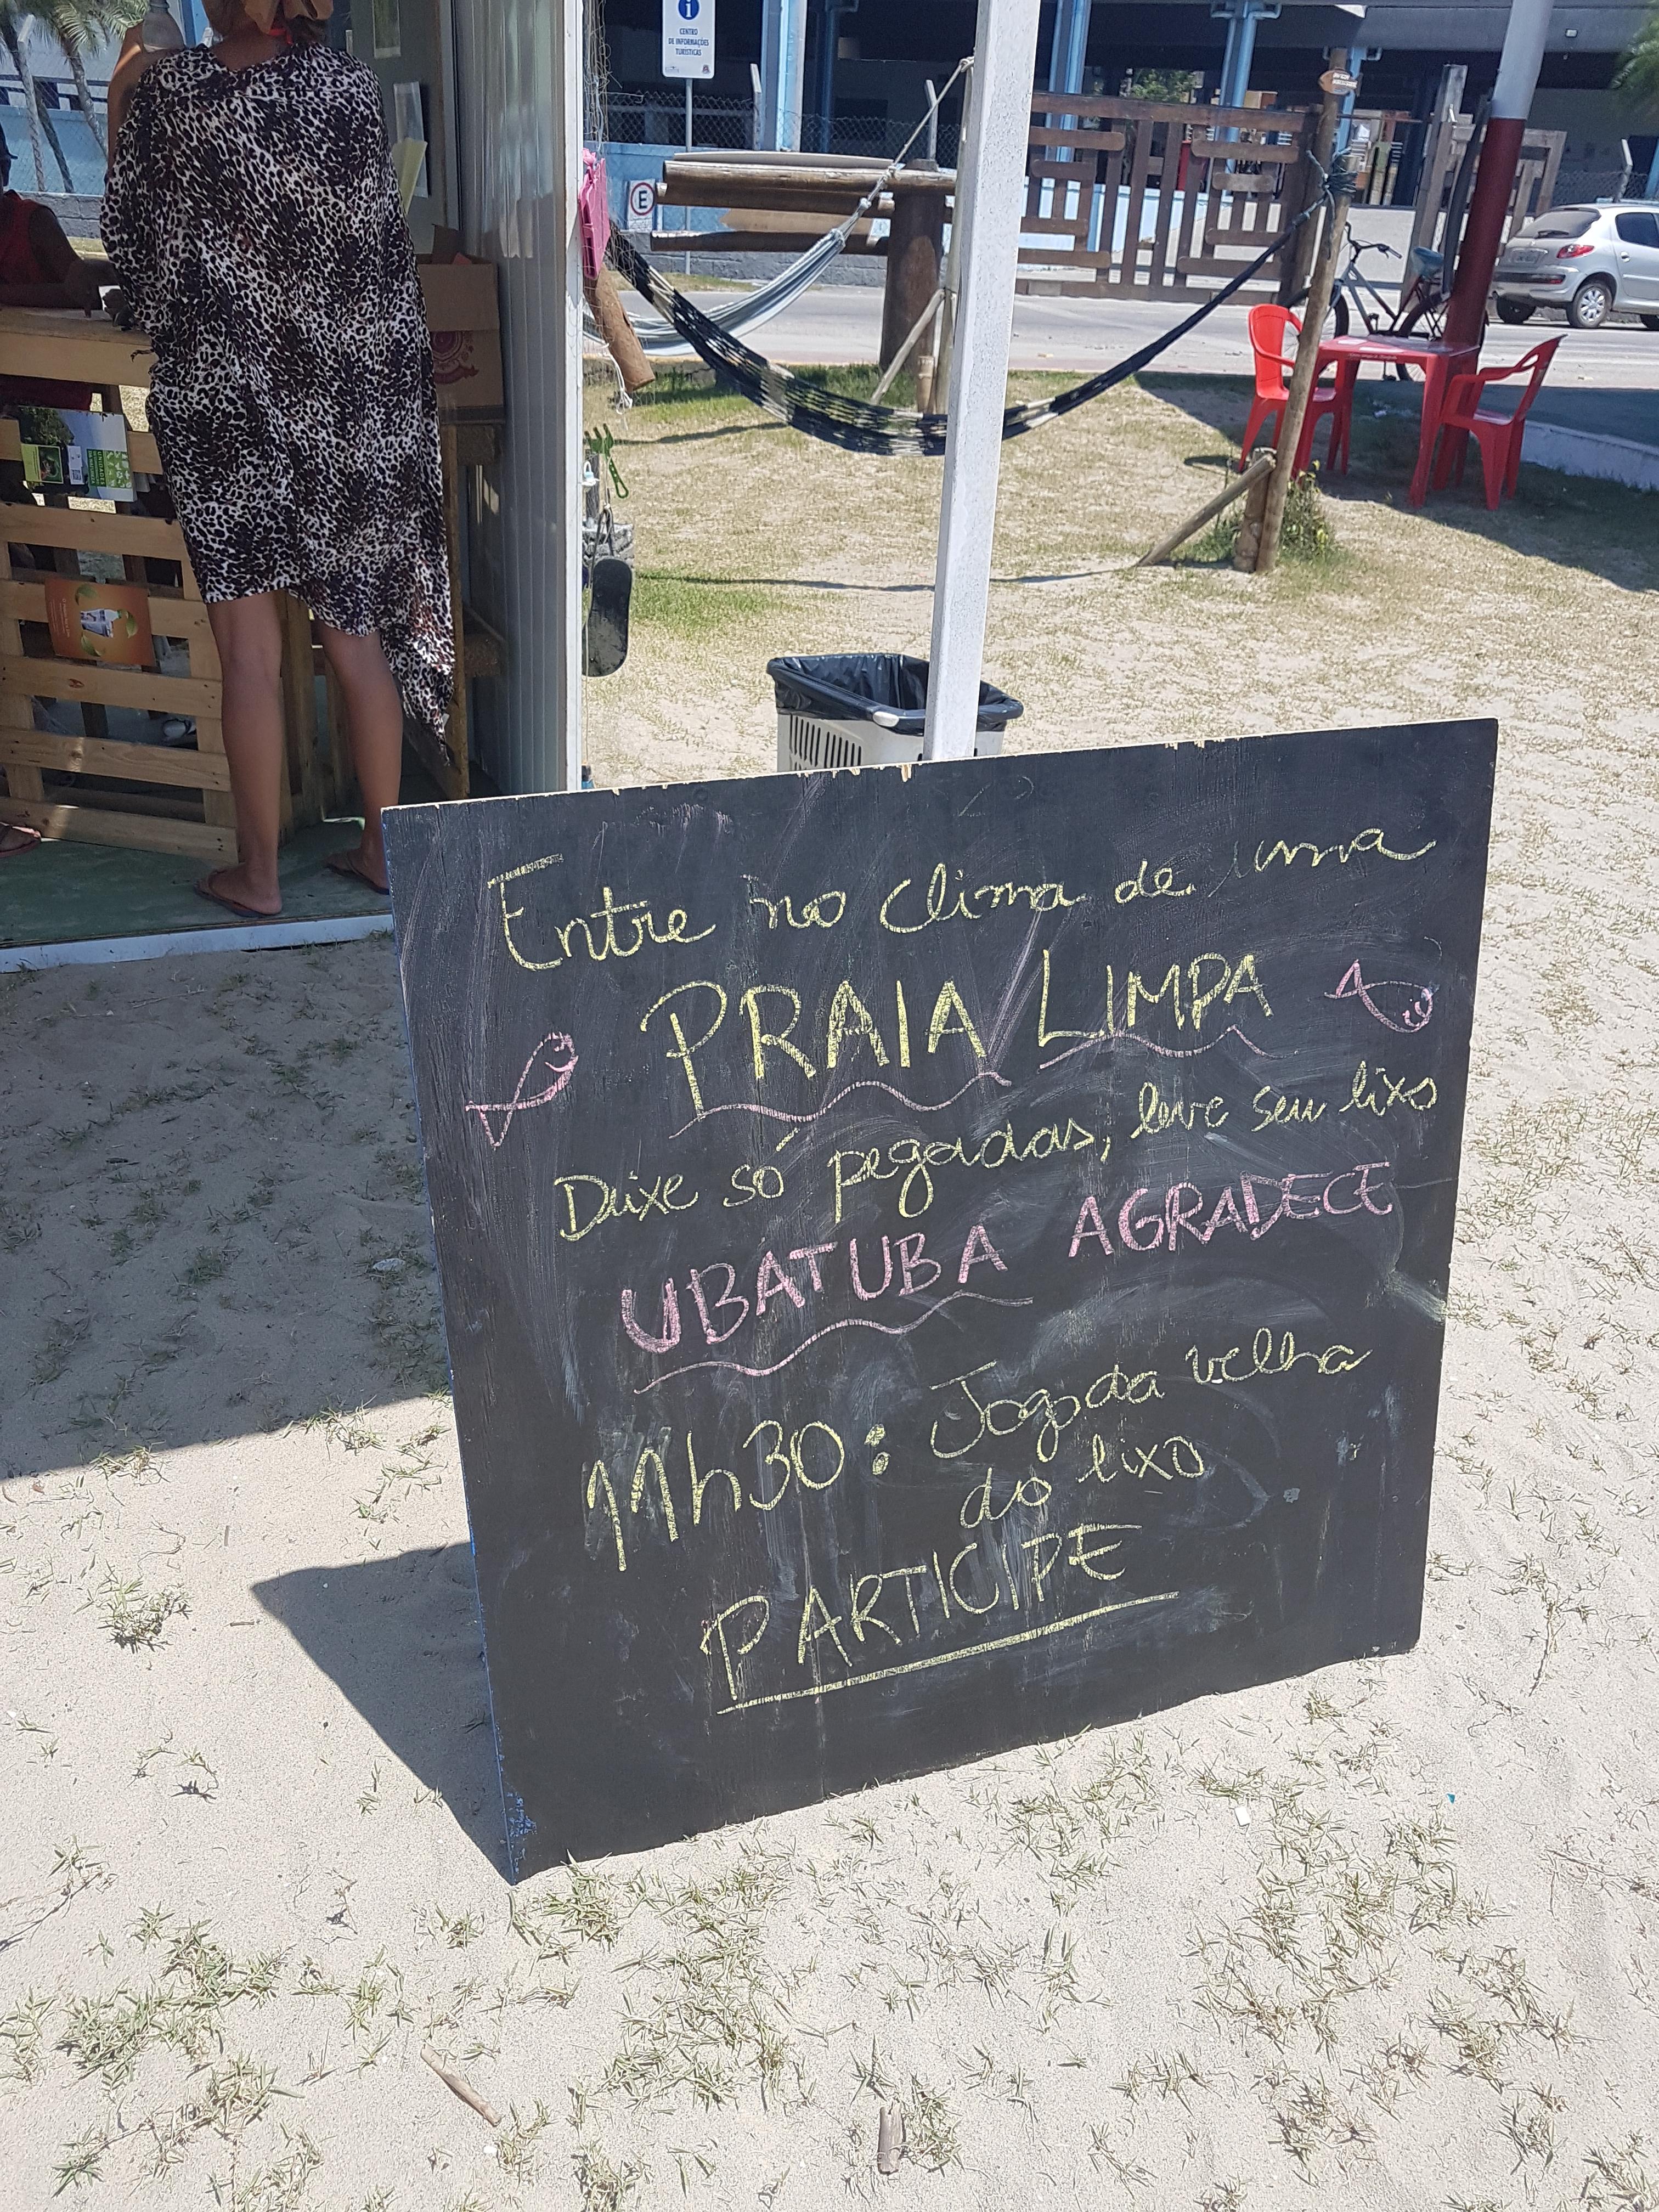 i
CENTRO
DE INFORMAÇÕES
TURÍSTICAS
E
Entre no clima de uma
PRAIA LIMPA
Deixe só pegadas, leve seu lixo
UBATUBA AGRADECE
11h30: Jogo da velha
do lixo
PARTICIPE